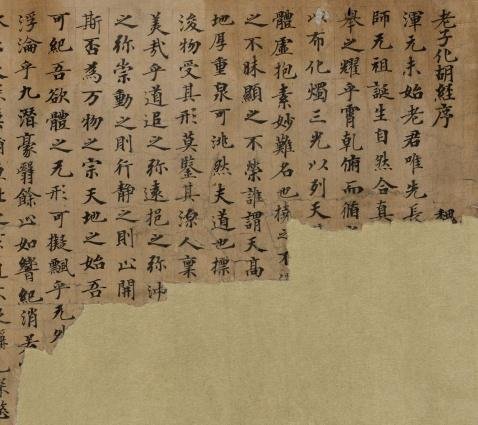 老子化胡經序 魏
渾元未始老君唯先長
師元祖誕生自然合真
舉之耀乎霄乾俯而循
以布化燭三光以列天
體虛抱素妙難名也挠之不
之不昧顯之不榮誰謂天高
地厚重泉可洮然夫道也摽
浚物受其形莫鑒其深人稟
美哉乎道追之弥遠挹之弥沖
之弥崇動之則行静之則止開
斯否為万物之宗天地之始吾
可紀吾欲體之无形可擬飄乎无外
浮淪乎九潛豪翳餘止如響紀消